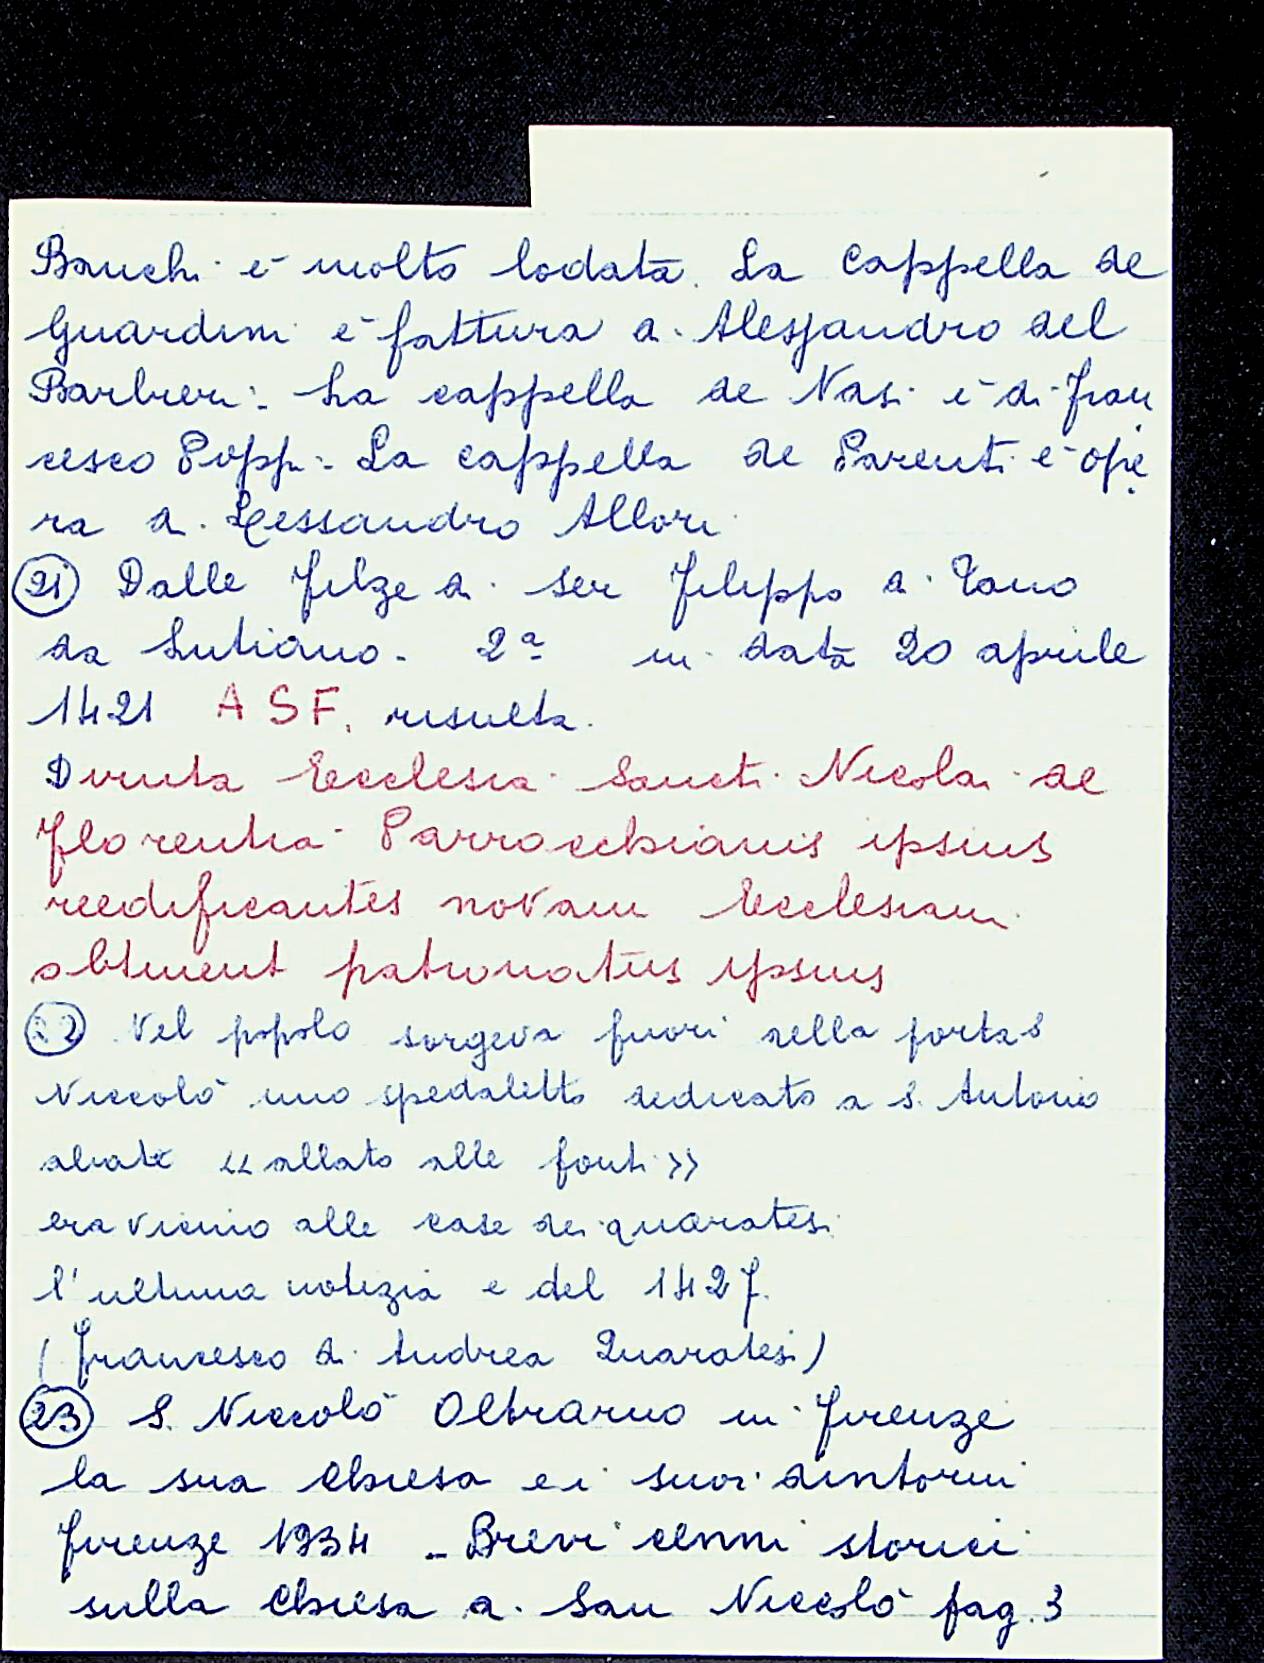 Bauchi è molto lodata. La cappella de
Guardini è fattura di Alessandro del
Barbieri. La cappella de Nasi è di Fran
cesco Poppi. La cappella de Parenti è ope
ra di Lessandro Allori
21 Dalle filze di ser Filippo di Tano
da Lutiano. 2ª in data 20 aprile
1421 ASF. risulta.
Diruta Ecclesia Sancti Nicolai de
Florentia Parrocchianis ipsius
reedificantes novam Ecclesiam
obtinent patronatus ipsius
22 Nel popolo sorgeva fuori della porta S
Niccolò uno spedaletto dedicato a S. Antonio
abate « allato alle fonti »
era vicino alle case dei quaratesi
l'ultima notizia e del 1427.
(Francesco di Andrea Quaratesi)
23 S. Niccolò Oltrarno in Firenze
la sua Chiesa e i suoi dintorni
Firenze 1934 - Brevi cenni storici
sulla Chiesa di San Niccolò pag. 3